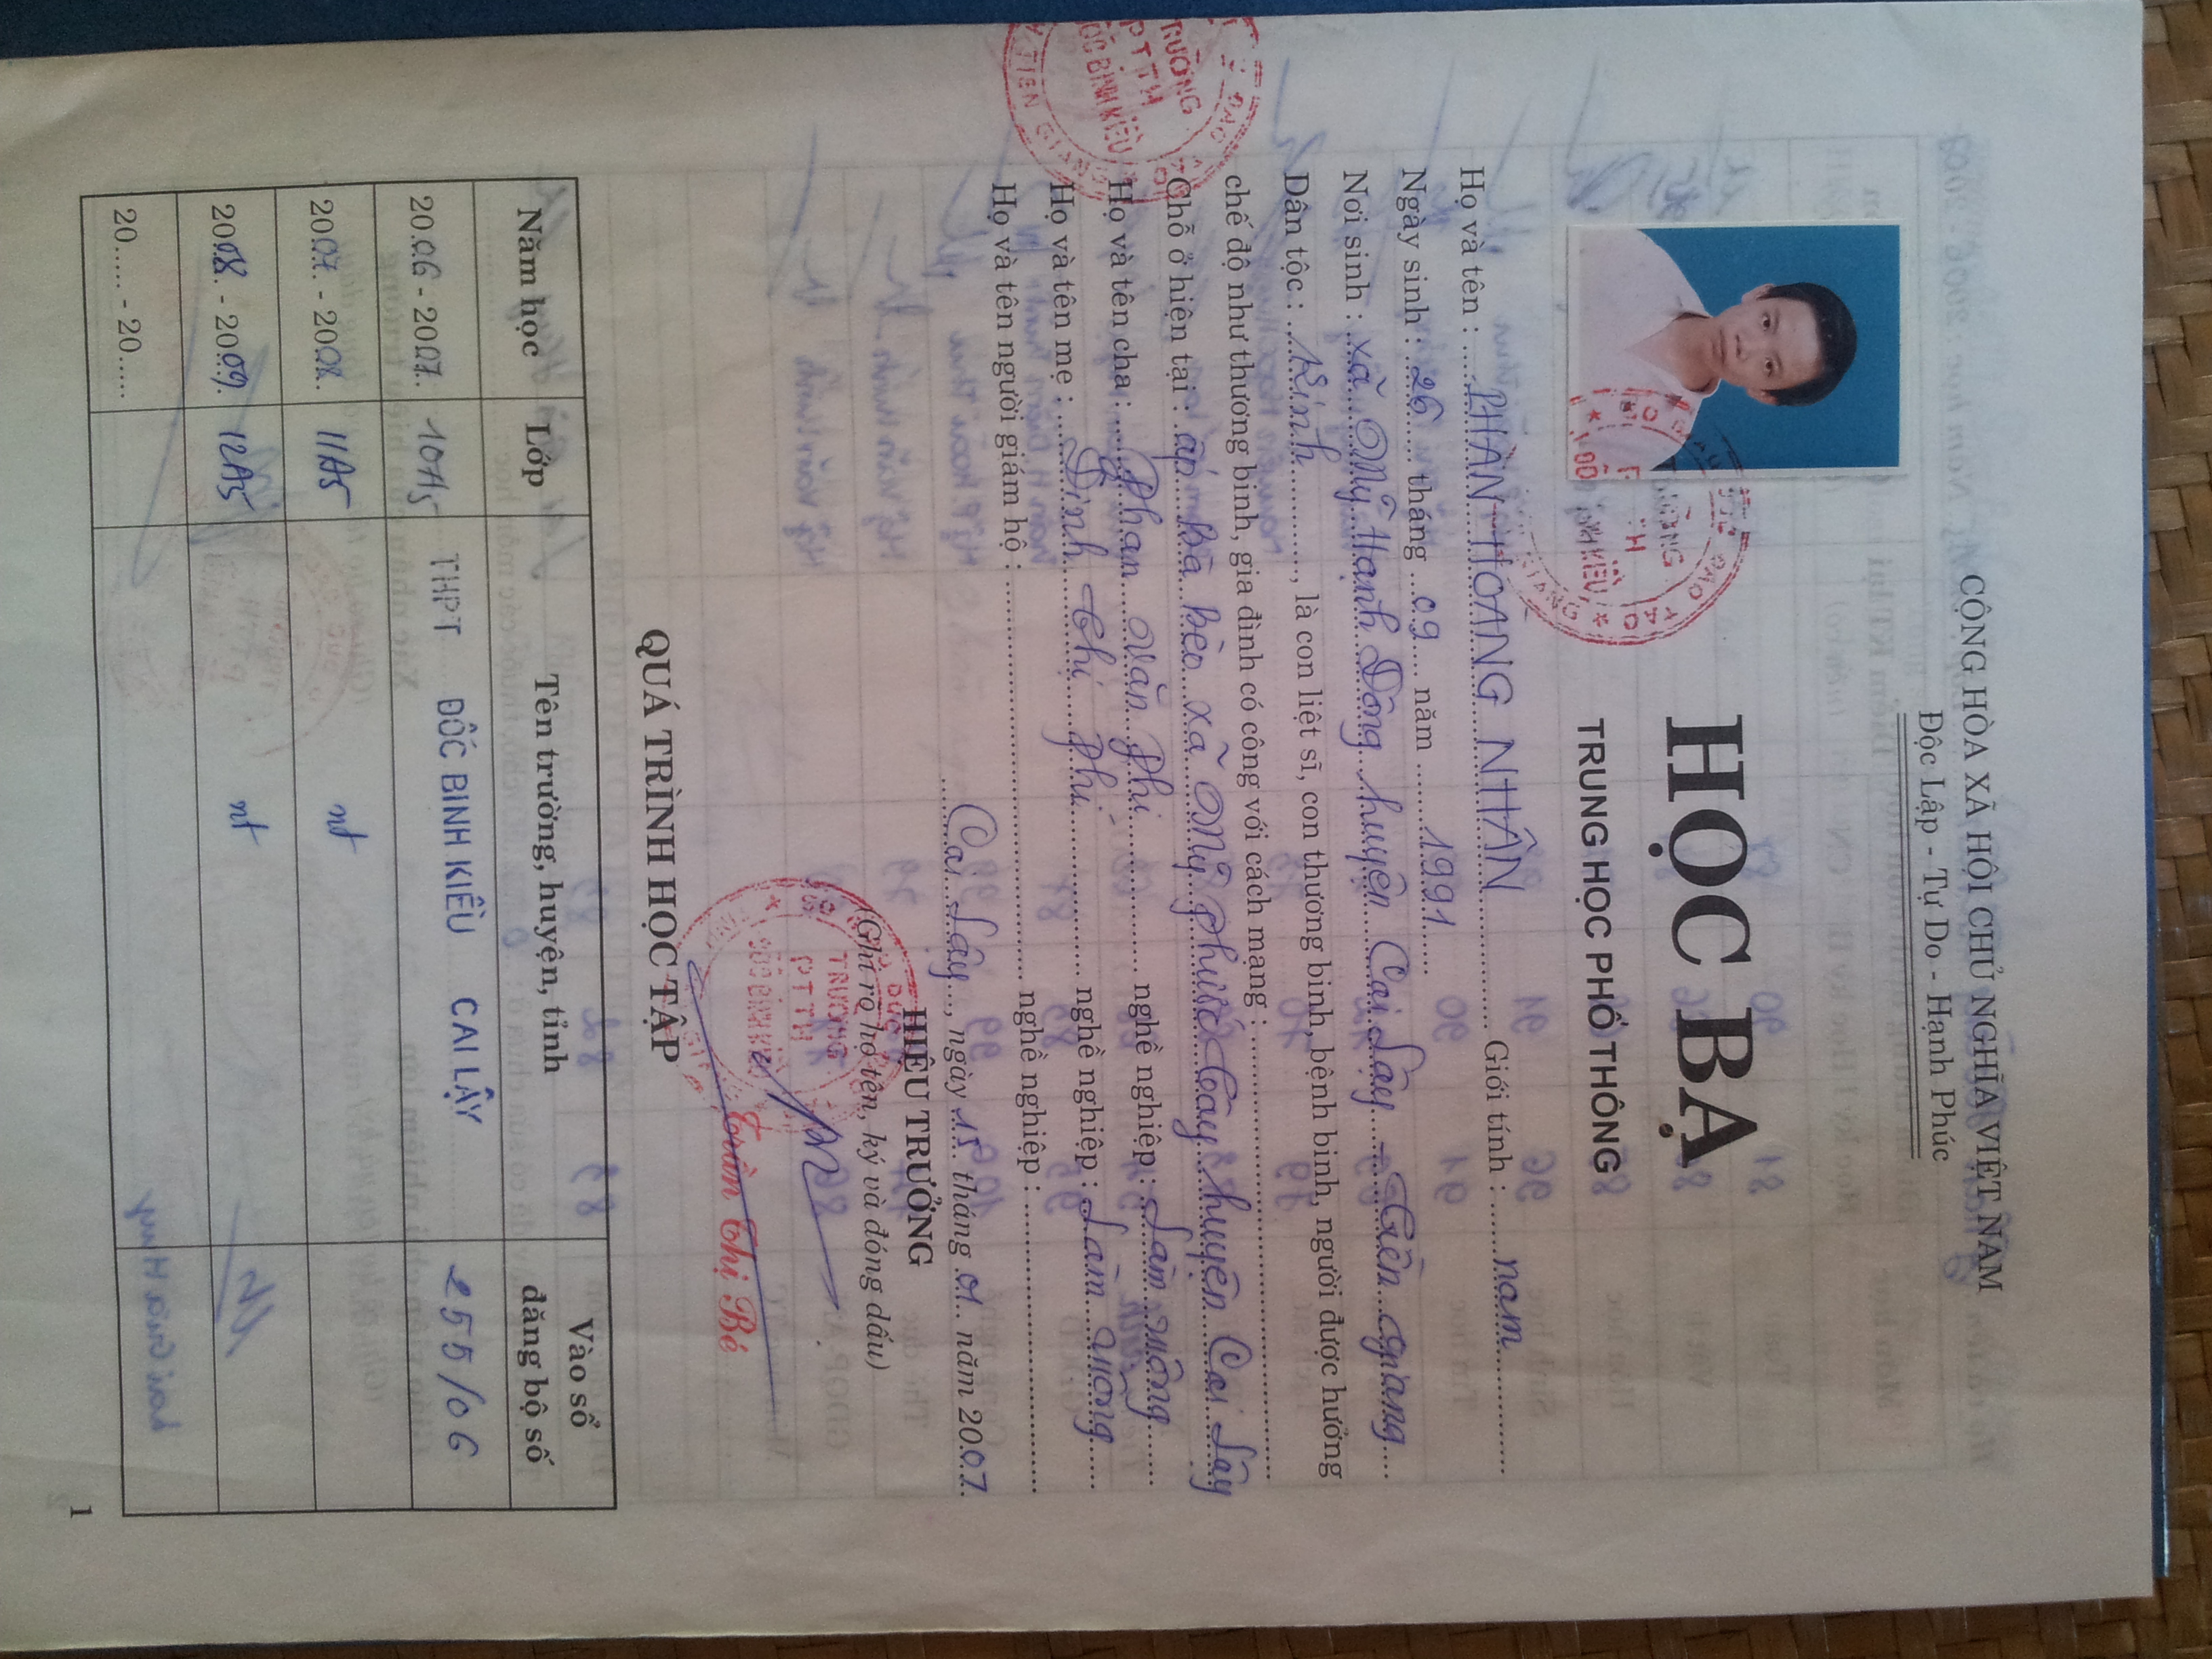 CỘNG HÒA XÃ HỘI CHỦ NGHĨA VIỆT NAM
Độc Lập - Tự Do - Hạnh Phúc
HỌC BẠ
TRUNG HỌC PHỔ THÔNG
Họ và tên : PHAN HOÀNG NHÂN Giới tính : nam
Ngày sinh : 26 tháng 09 năm 1991
Nơi sinh : xã Mỹ Hạnh Đông huyện Cai Lậy - Tiền Giang
Dân tộc : Kinh, là con liệt sĩ, con thương binh, bệnh binh, người được hưởng
chế độ như thương binh, gia đình có công với cách mạng :
Chỗ ở hiện tại : ấp Bà Bèo xã Mỹ Phước Tây huyện Cai Lậy
Họ và tên cha : Phan Văn Phi nghề nghiệp : Làm ruộng
Họ và tên mẹ : Đinh Thị Phi nghề nghiệp : Làm ruộng
Họ và tên người giám hộ : nghề nghiệp :
Cai Lậy, ngày 15 tháng 01 năm 2007
HIỆU TRƯỞNG
(Ghi rõ họ tên, ký và đóng dấu)
TRƯỜNG
PTTH
ĐỐC BINH KIỀU
Trần Thị Bé
QUÁ TRÌNH HỌC TẬP
Năm học Lớp Tên trường, huyện, tỉnh Vào sổ đăng bộ số
2006 - 2007 10A5 THPT ĐỐC BINH KIỀU CAI LẬY 255/06
2007 - 2008 11A5 nt
2008 - 2009 12A5 nt
20...... - 20......
1